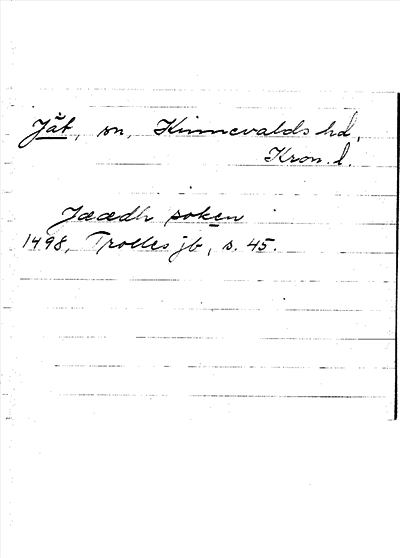 Jät, sn, Kinnevalds hd,
Kron. l.
Jææedh soken
1498, Trolles jb, s. 45.